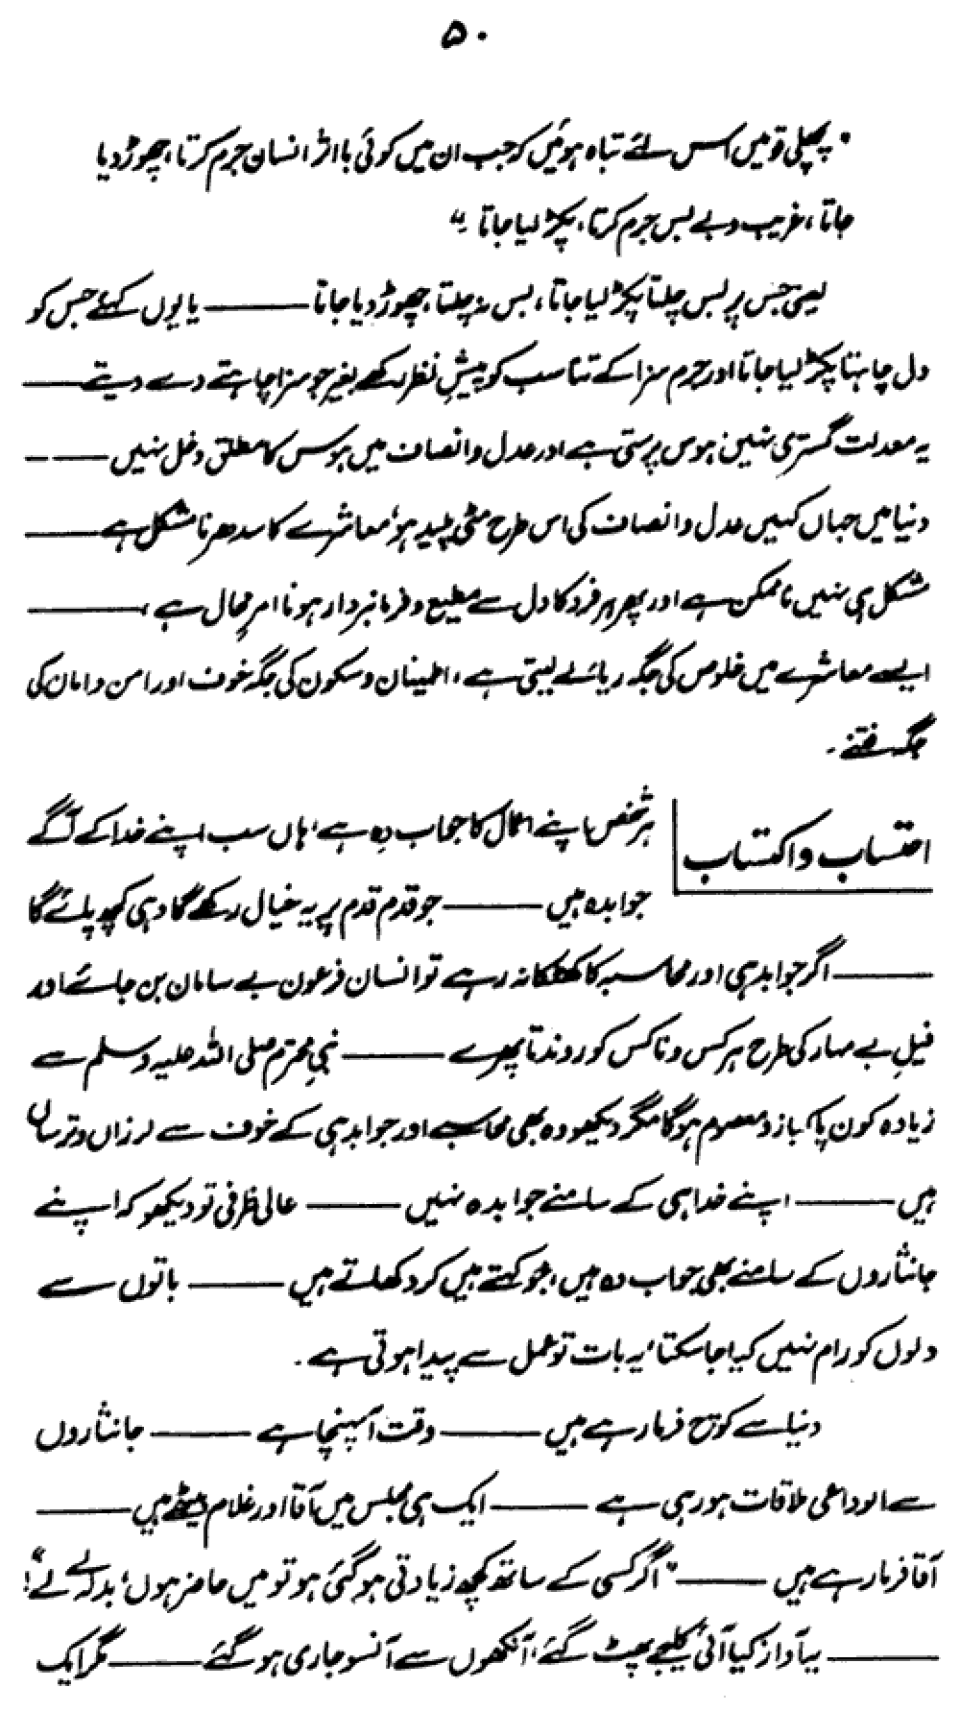 ۵۰
"پچھلی قومیں اسس لئے تباہ ہوئیں کہ جب ان میں کوئی بااثر انسان جرم کرتا، چھوڑ دیا
جاتا، غریب و بے بس جرم کرتا، پکڑ لیا جاتا۔"
یعنی جس پر بس چلتا پکڑ لیا جاتا، بس نہ چلتا، چھوڑ دیا جاتا ——— یا یوں کہئے جس کو
دل چاہتا پکڑ لیا جاتا اور جرم سزا کے تناسب کو پیشِ نظر رکھے بغیر جو سزا چاہتے دے دیتے ———
یہ معدلت گستری نہیں ہوس پرستی ہے اور عدل و انصاف میں ہوس کا مطلق دخل نہیں ———
دنیا میں جہاں کہیں عدل و انصاف کی اس طرح مٹی پلید ہو، معاشرے کا سدھرنا مشکل ہے ———
مشکل ہی نہیں ناممکن ہے اور پھر ہر فرد کا دل سے مطیع و فرمانبردار ہونا امرِ محال ہے، ———
ایسے معاشرے میں خلوص کی جگہ ریا لے لیتی ہے، اطمینان و سکون کی جگہ خوف اور امن و امان کی
جگہ فتنے۔
احتساب و اکتساب
ہر شخص اپنے اعمال کا جواب دِہ ہے، ہاں سب اپنے خدا کے آگے
جوابدہ ہیں ——— جو قدم قدم پر یہ خیال رکھے گا وہی کچھ پائے گا
——— اگر جوابدہی اور محاسبہ کا کھٹکا نہ رہے تو انسان فرعون بے سامان بن جائے اور
فیلِ بے مہار کی طرح ہر کس و ناکس کو روندتا پھرے ——— نبیِ محترم صلی اللہ علیہ وسلم سے
زیادہ کون پاکباز و معصوم ہوگا مگر دیکھو وہ بھی محاسبے اور جوابدہی کے خوف سے لرزاں و ترساں
ہیں ——— اپنے خدا ہی کے سامنے جوابدہ نہیں ——— عالی ظرفی تو دیکھو کہ اپنے
جانثاروں کے سامنے بھی جواب دہ ہیں، جو کہتے ہیں کر دکھلاتے ہیں ——— باتوں سے
دلوں کو رام نہیں کیا جا سکتا، یہ بات تو عمل سے پیدا ہوتی ہے۔
دنیا سے کوچ فرما رہے ہیں ——— وقت آ پہنچا ہے ——— جانثاروں
سے الوداعی ملاقات ہو رہی ہے ——— ایک ہی مجلس میں آقا اور غلام بیٹھے ہیں ———
آقا فرما رہے ہیں ——— "اگر کسی کے ساتھ کچھ زیادتی ہو گئی ہو تو میں حاضر ہوں، بدلہ لے لے"!
——— یہ آواز کیا آئی، کلیجے پھٹ گئے، آنکھوں سے آنسو جاری ہو گئے ——— مگر ایک